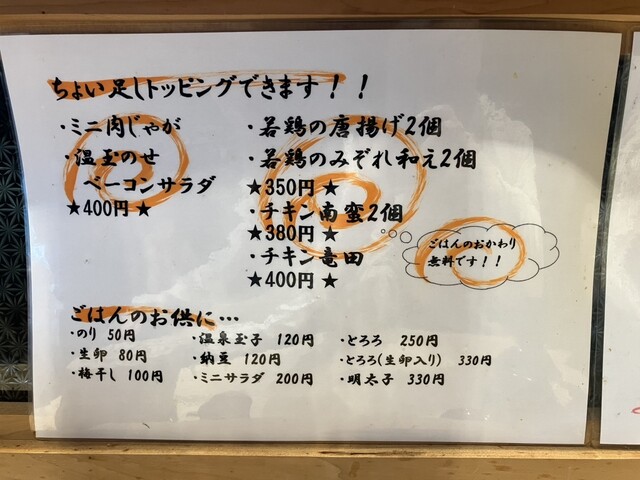 ちょい足しトッピングできます！！
・ミニ肉じゃが
・温玉のせ
ベーコンサラダ
★400円★
・若鶏の唐揚げ2個
・若鶏のみぞれ和え2個
★350円★
・チキン南蛮2個
★380円★
・チキン竜田
★400円★
ごはんのおかわり
無料です！！
ごはんのお供に…
・のり 50円
・生卵 80円
・梅干し 100円
・温泉玉子 120円
・納豆 120円
・ミニサラダ 200円
・とろろ 250円
・とろろ(生卵入り) 330円
・明太子 330円